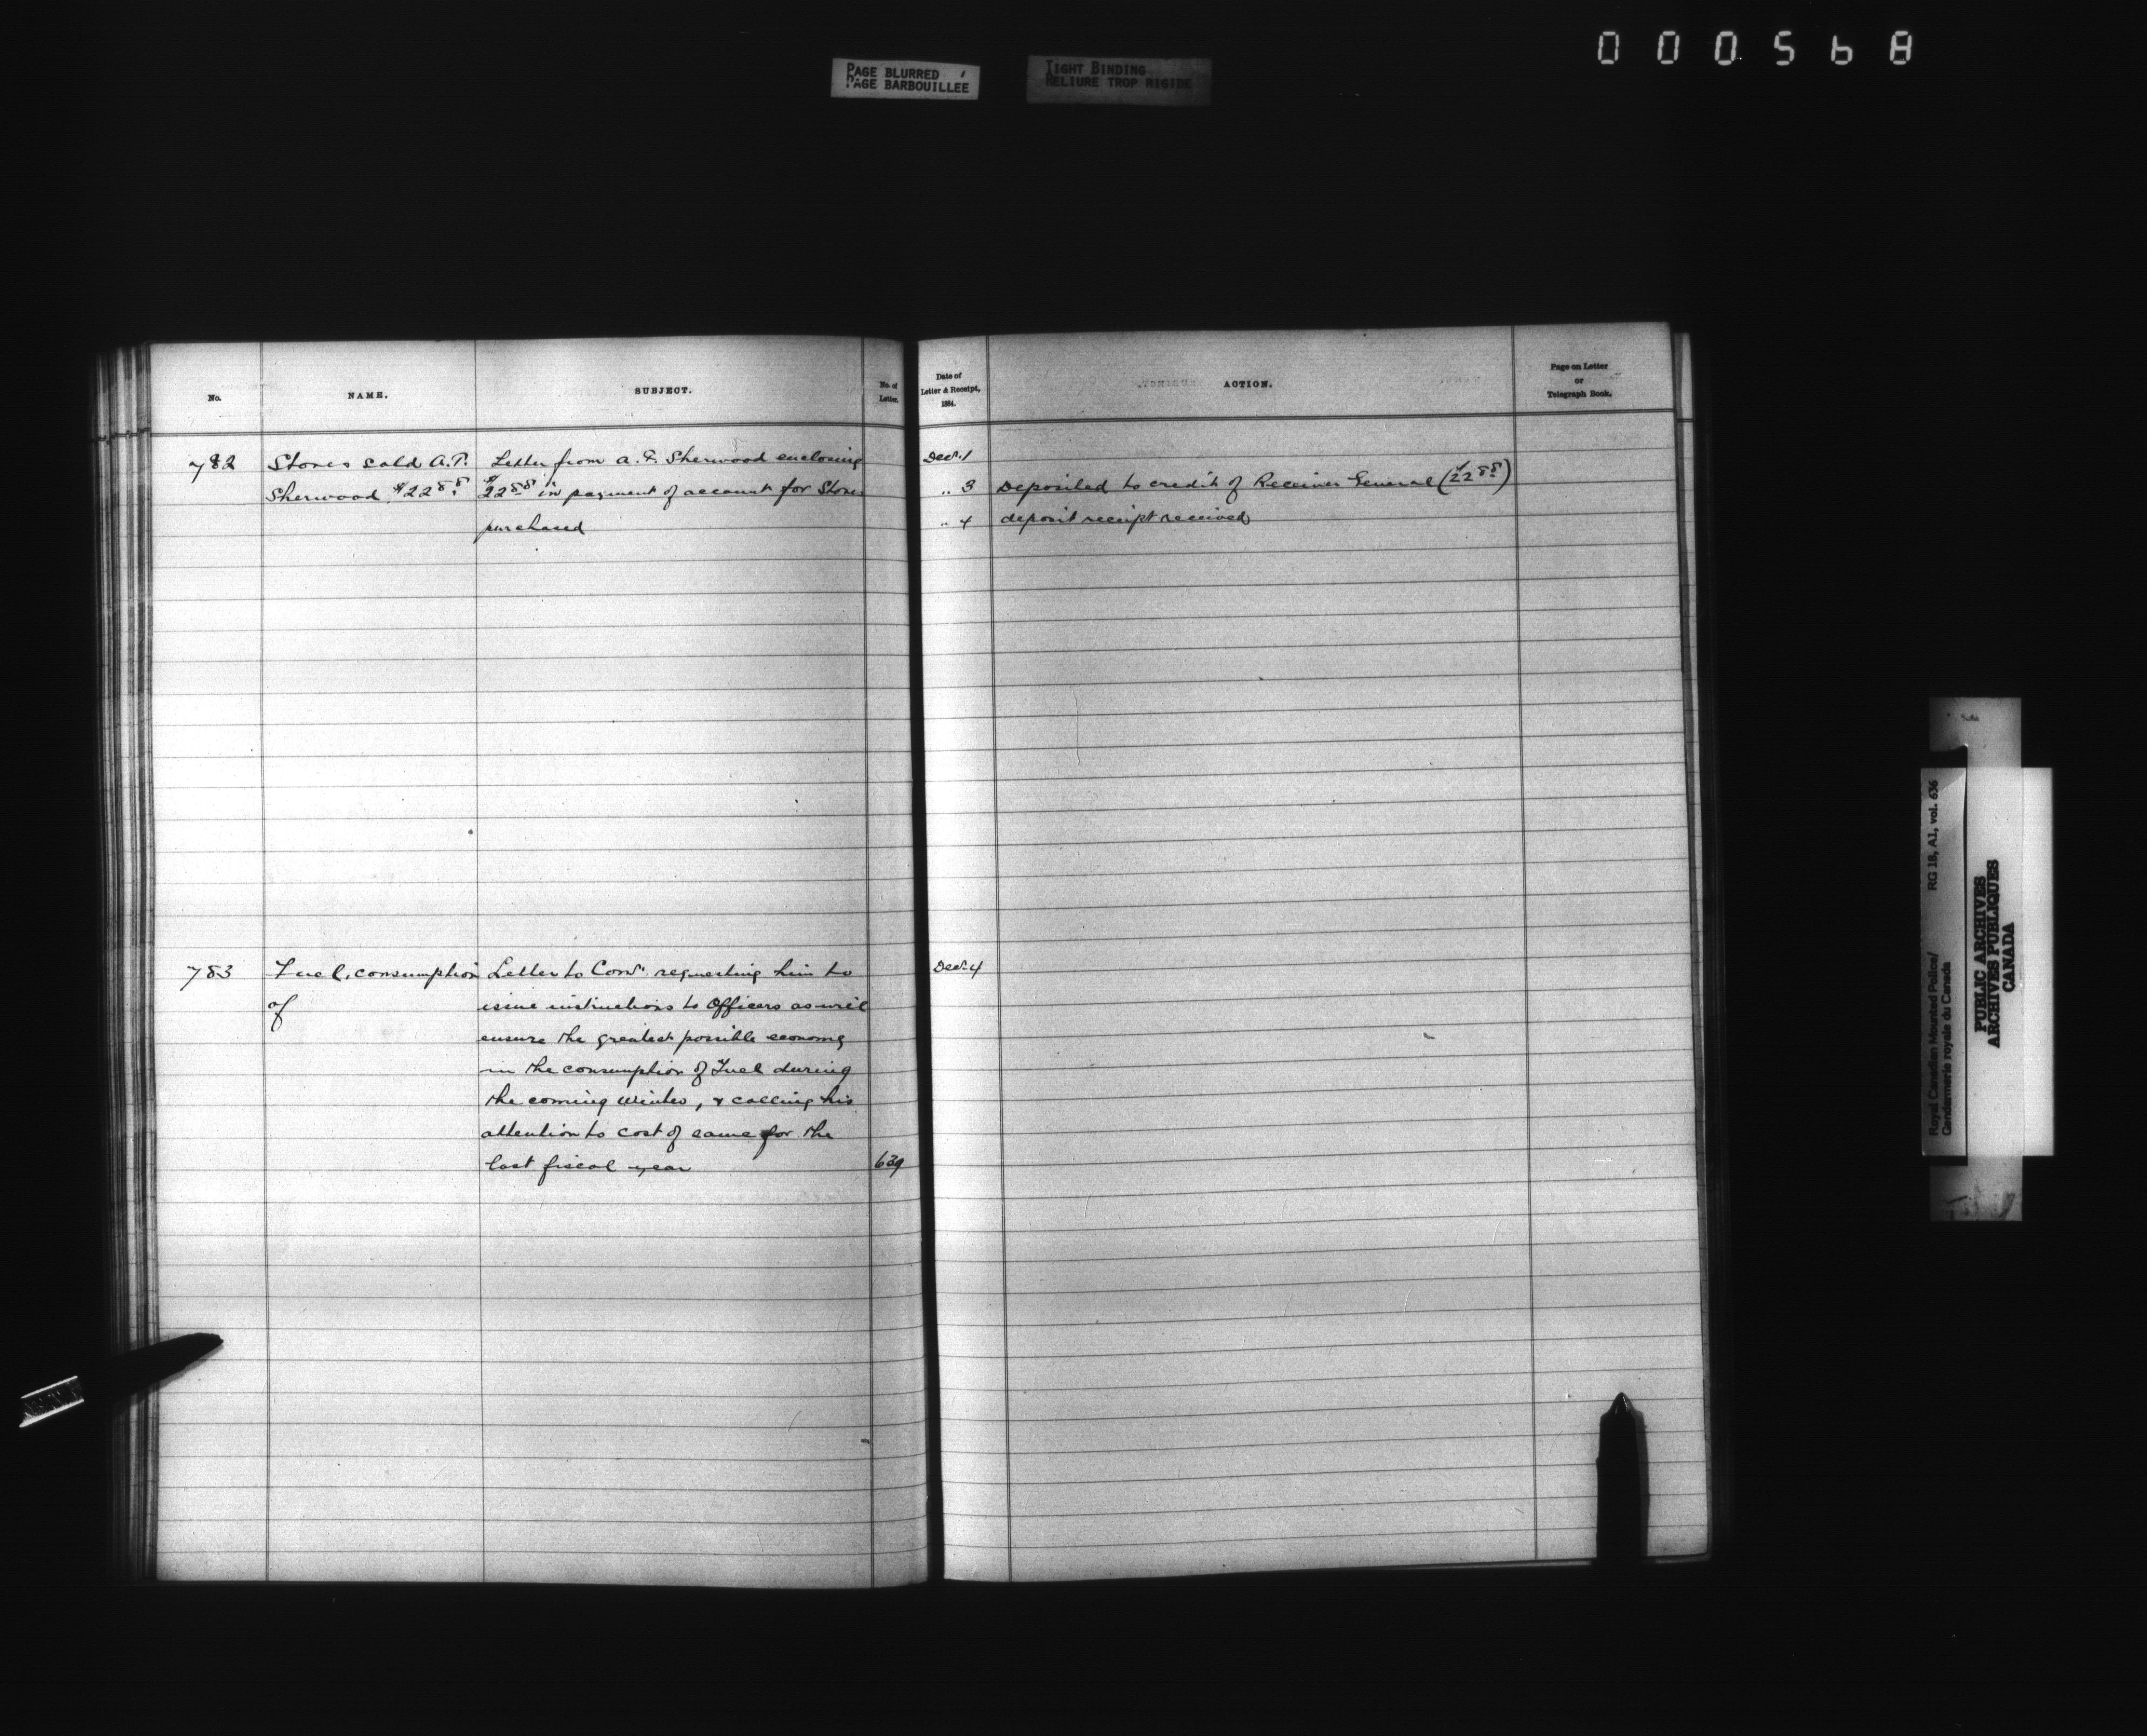 000568
PAGE BLURRED
PAGE BARBOUILLÉE
TIGHT BINDING
RELIURE TROP RIGIDE
No.
NAME.
SUBJECT.
No. of
Letter.
Date of
Letter & Receipt,
1884.
ACTION.
Page on Letter
or
Telegraph Book.
782
Stores sold A.P.
Sherwood $22.88
Letter from A.P. Sherwood enclosing
$22.88 in payment of account for Stores
purchased
Decr. 1
" 3 Deposited to credit of Receiver General ($22.88)
" 4 deposit receipt received
783
Fuel, consumption
of
Letter to Comr. requesting him to
issue instructions to Officers as will
ensure the greatest possible economy
in the consumption of Fuel during
the coming Winter, & calling his
attention to cost of same for the
last fiscal year
639
Decr. 4
Royal Canadian Mounted Police/ RG 18, A1, vol. 636
Gendarmerie royale du Canada
PUBLIC ARCHIVES
ARCHIVES PUBLIQUES
CANADA